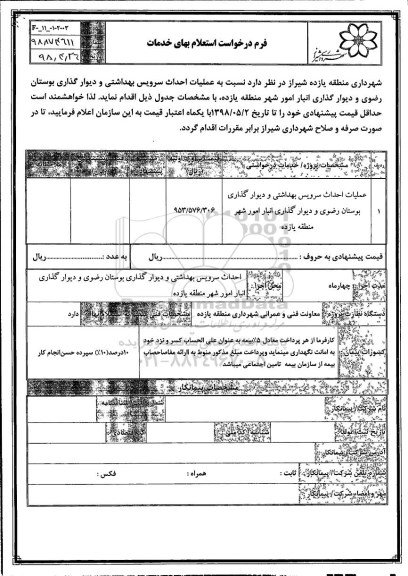 F-۰_۱۱_۰۱-۲۰۰۳
فرم درخواست استعلام بهای خدمات
شهرداری منطقه یازده شیراز در نظر دارد نسبت به عملیات احداث سرویس بهداشتی و دیوار گذاری بوستان
رضوی و دیوار گذاری انبار امور شهر منطقه یازده، با مشخصات جدول ذیل اقدام نماید. لذا خواهشمند است
حداقل قیمت پیشنهادی خود را تا تاریخ ۱۳۹۸/۰۵/۲با یکماه اعتبار قیمت به این سازمان اعلام فرمایید، تا در
صورت صرفه و صلاح شهرداری شیراز برابر مقررات اقدام گردد.
مشخصات پروژه/ خدمات درخواستی
ریال
۱ عملیات احداث سرویس بهداشتی و دیوار گذاری بوستان رضوی و دیوار گذاری انبار امور شهر منطقه یازده ۹۵۳/۵۷۶/۳۰۶
قیمت پیشنهادی به حروف : ریال به عدد : ریال
مدت اجرا: چهارماه محل اجرا: احداث سرویس بهداشتی و دیوار گذاری بوستان رضوی و دیوار گذاری
انبار امور شهر منطقه یازده
دستگاه نظارت پروژه: معاونت فنی و عمرانی شهرداری منطقه یازده مشخصات فنی دارد
کسورات پیمان: کارفرما از هر پرداخت معادل ۵٪بیمه به عنوان علی الحساب کسر و نزد خود
به امانت نگهداری مینماید وپرداخت مبلغ مذکور منوط به ارائه مفاصاحساب
بیمه از سازمان بیمه تامین اجتماعی میباشد
۱۰درصد(۱۰٪) سپرده حسن‌انجام کار
مشخصات پیمانکار
نام شرکت/ پیمانکار:
تاریخ ثبت/تولد:
آدرس شرکت/ پیمانکار:
شماره تلفن شرکت/ پیمانکار: ثابت : همراه : فکس :
مهر و امضاء شرکت/ پیمانکار: